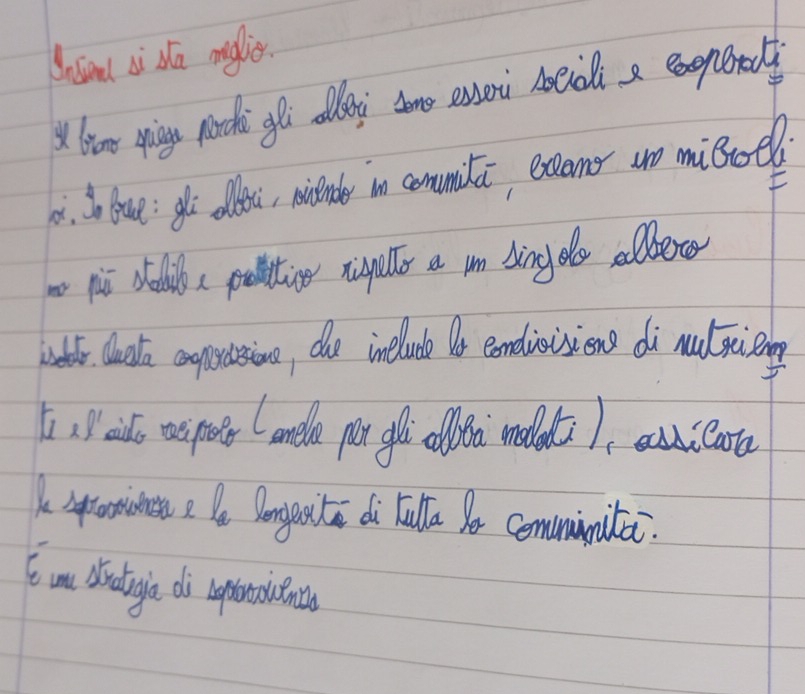 Insieme si sta meglio.
Il brano spiega perché gli alberi sono esseri sociali e cooperati
vi. In breve: gli alberi, vivendo in comunità, creano un microcli
mo più stabile e protettivo rispetto a un singolo albero
isolato. Questa cooperazione, che include la condivisione di nutrien
ti e l'aiuto reciproco (anche per gli alberi malati), assicura
la sopravvivenza e la longevità di tutta la comunità.
È una strategia di sopravvivenza